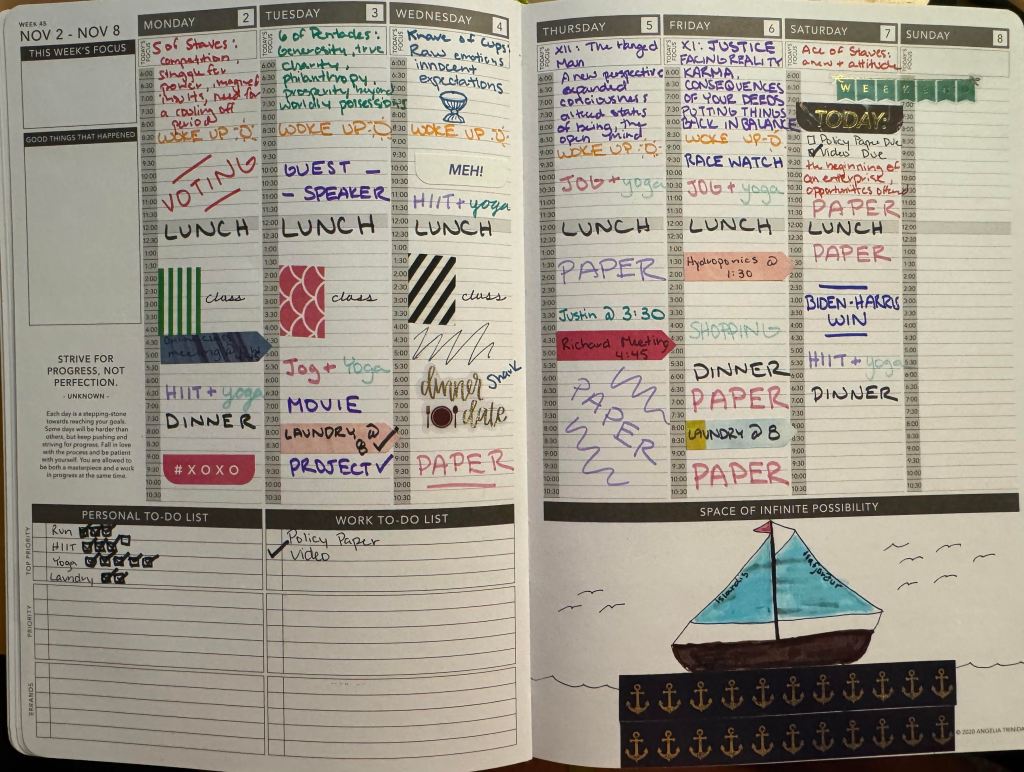 WEEK 45
NOV 2 - NOV 8
THIS WEEK'S FOCUS
GOOD THINGS THAT HAPPENED
STRIVE FOR
PROGRESS, NOT
PERFECTION.
- UNKNOWN -
Each day is a stepping-stone
towards reaching your goals.
Some days will be harder
than others, but keep pushing and
striving for progress. Fall in love
with the process and be patient
with yourself. You are allowed to
be both a masterpiece and a work
in progress at the same time.
MONDAY 2
TODAY'S FOCUS
5 of Staves:
competition,
struggle for
power,
need for
a cooling off
period
WOKE UP
VOTING
LUNCH
class
meeting @
HIIT + yoga
DINNER
#XOXO
TUESDAY 3
TODAY'S FOCUS
6 of Pentacles:
Generosity, true
charity,
philanthropy,
prosperity beyond
worldly possessions
WOKE UP
GUEST -
- SPEAKER
LUNCH
class
Jog + Yoga
MOVIE
LAUNDRY @
8
PROJECT
WEDNESDAY 4
TODAY'S FOCUS
Knave of Cups:
Raw emotions
innocent
expectations
WOKE UP
MEH!
HIIT + yoga
LUNCH
class
dinner
date
PAPER
THURSDAY 5
TODAY'S FOCUS
XII: The Hanged
Man
A new perspective
expanded
consciousness
altered states
of being, the
open mind
WOKE UP
JOG + yoga
LUNCH
PAPER
Justin @ 3:30
Richard Meeting
4:45
PAPER
FRIDAY 6
TODAY'S FOCUS
XI: JUSTICE
FACING REALITY
KARMA,
CONSEQUENCES
OF YOUR DEEDS
PUTTING THINGS
BACK IN BALANCE
WOKE UP
RACE WATCH
JOG + yoga
LUNCH
Hydroponics @
1:30
SHOPPING
DINNER
PAPER
LAUNDRY @ 8
PAPER
SATURDAY 7
TODAY'S FOCUS
Ace of Staves:
a new attitude,
TODAY:
Policy Paper Due
Video Due
the beginning of
an enterprise,
opportunities
PAPER
LUNCH
PAPER
BIDEN-HARRIS
WIN
HIIT + yoga
DINNER
SUNDAY 8
WEEKEND
PERSONAL TO-DO LIST
TOP PRIORITY
Run
HIIT
Yoga
Laundry
PRIORITY
ERRANDS
WORK TO-DO LIST
Policy Paper
Video
SPACE OF INFINITE POSSIBILITY
© 2020 ANGELIA TRINIDA